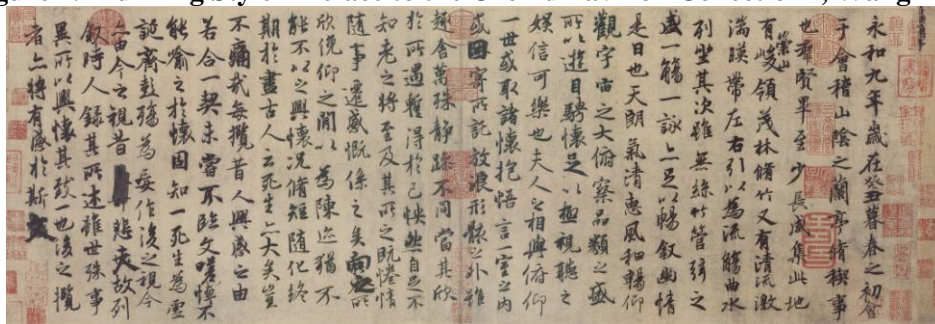 Running Style: Preface to the Orchid Pavilion Collection, Wang
永和九年歲在癸丑暮春之初會
于會稽山陰之蘭亭脩稧事
也羣賢畢至少長咸集此地
有崇山峻領茂林脩竹又有清流激
湍暎帶左右引以為流觴曲水
列坐其次雖無絲竹管弦之
盛一觴一詠亦足以暢敘幽情
是日也天朗氣清惠風和暢仰
觀宇宙之大俯察品類之盛
所以遊目騁懷足以極視聽之
娛信可樂也夫人之相與俯仰
一世或取諸懷抱悟言一室之內
或因寄所託放浪形骸之外雖
趣舍萬殊靜躁不同當其欣
於所遇蹔得於己怏然自足不
知老之將至及其所之既惓情
隨事遷感慨係之矣向之所
欣俛仰之閒以為陳迹猶不
能不以之興懷況脩短隨化終
期於盡古人云死生亦大矣豈
不痛哉每攬昔人興感之由
若合一契未嘗不臨文嗟悼不
能喻之於懷固知一死生為虛
誕齊彭殤為妄作後之視今
亦由今之視昔悲夫故列
敘時人錄其所述雖世殊事
異所以興懷其致一也後之攬
者亦將有感於斯文